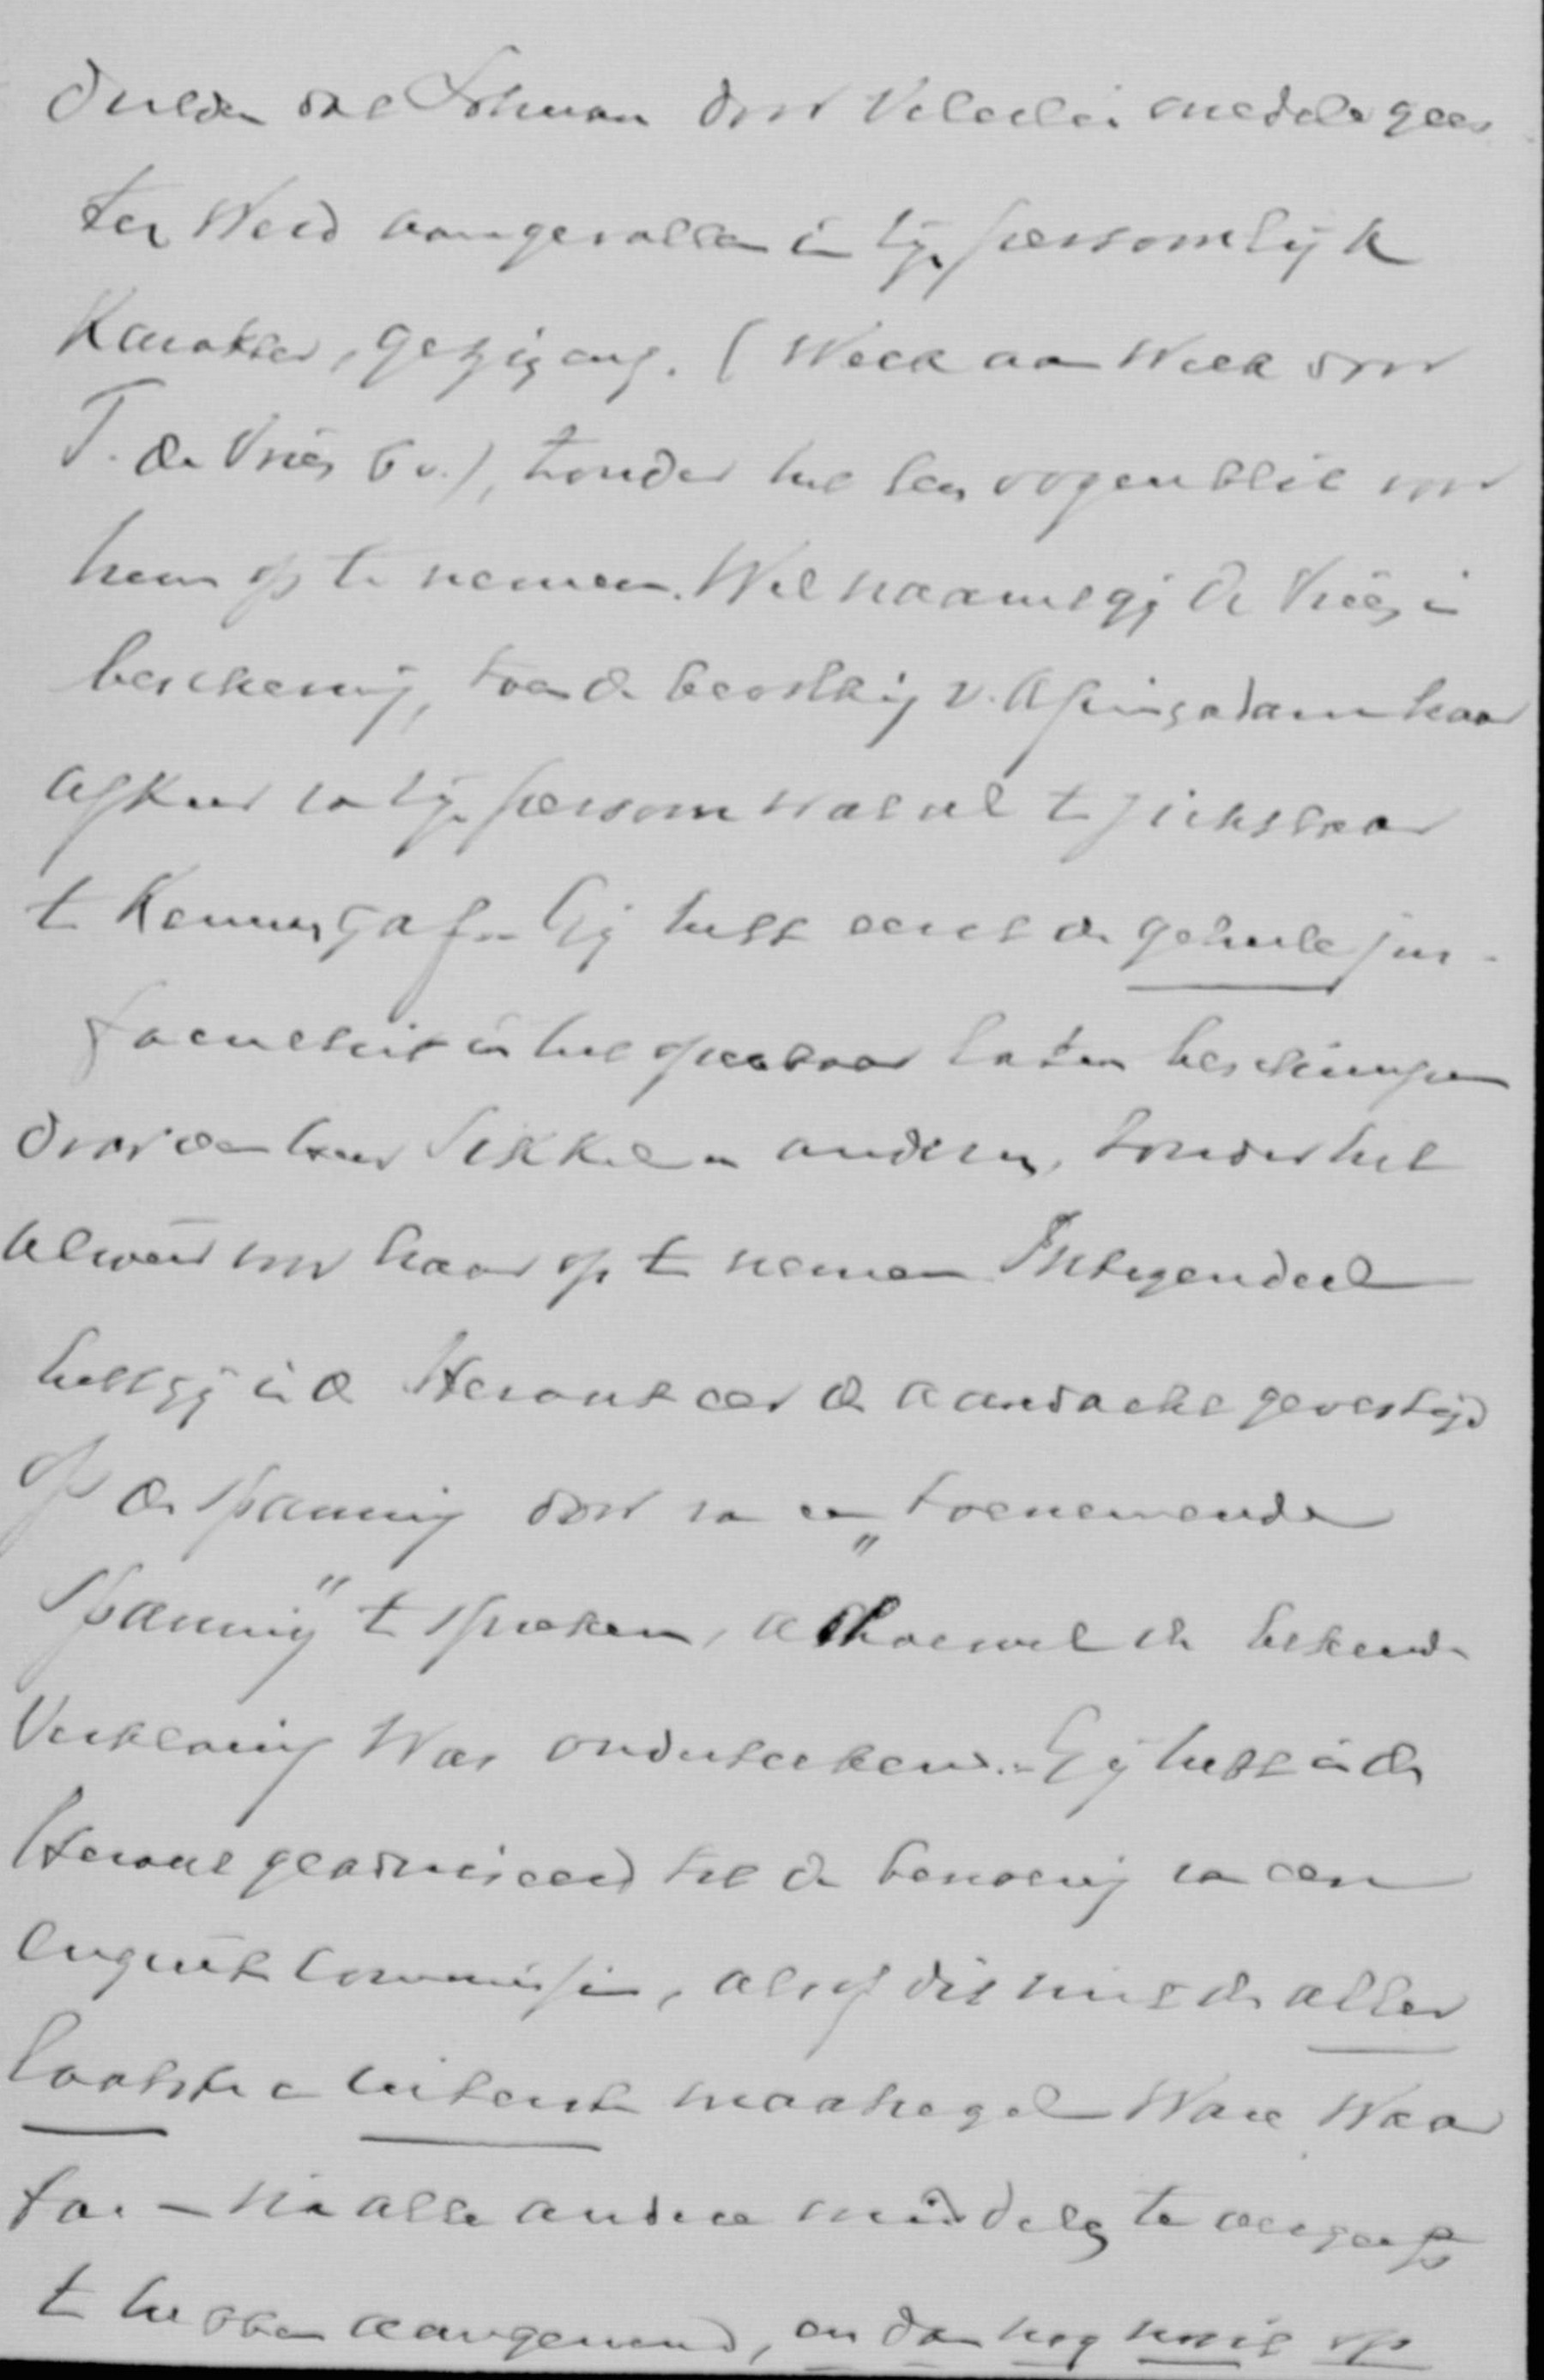 dulden dat Lohman door velerlei medestan
ter werd aangevallen in zijn persoonlijk
karakter, gezin enz. (Week aan week door
T. de Vries b.v.), zonder het een oogenblik voor
hem op te nemen. Wel naamt gij de Vries in
bescherming, toen de bevolking v. Appingadam haar
afkeer van zijn persoon wat al te zichtbaar
te kennen gaf. Gij hebt eerst de geheele jur.
faculteit in het openbaar laten beschimpen
door den heer Sikkel en anderen, zonder het
ooit voor haar op te nemen. Integendeel
hebt gij in de Heraut eer de aandacht gevestigd
op de spanning door van een „toenemende
spanning" te spreken, alhoewel de bekende
verklaring was onderteekend. Gij hebt in de
Heraut geadviseerd tot de benoeming van een
enquête commissie, alsof dit niet de aller
laatste en uiterste maatregel ware waar
toe – na alle andere middelen te vergeefs
te hebben aangewend, en dan nog nooit op